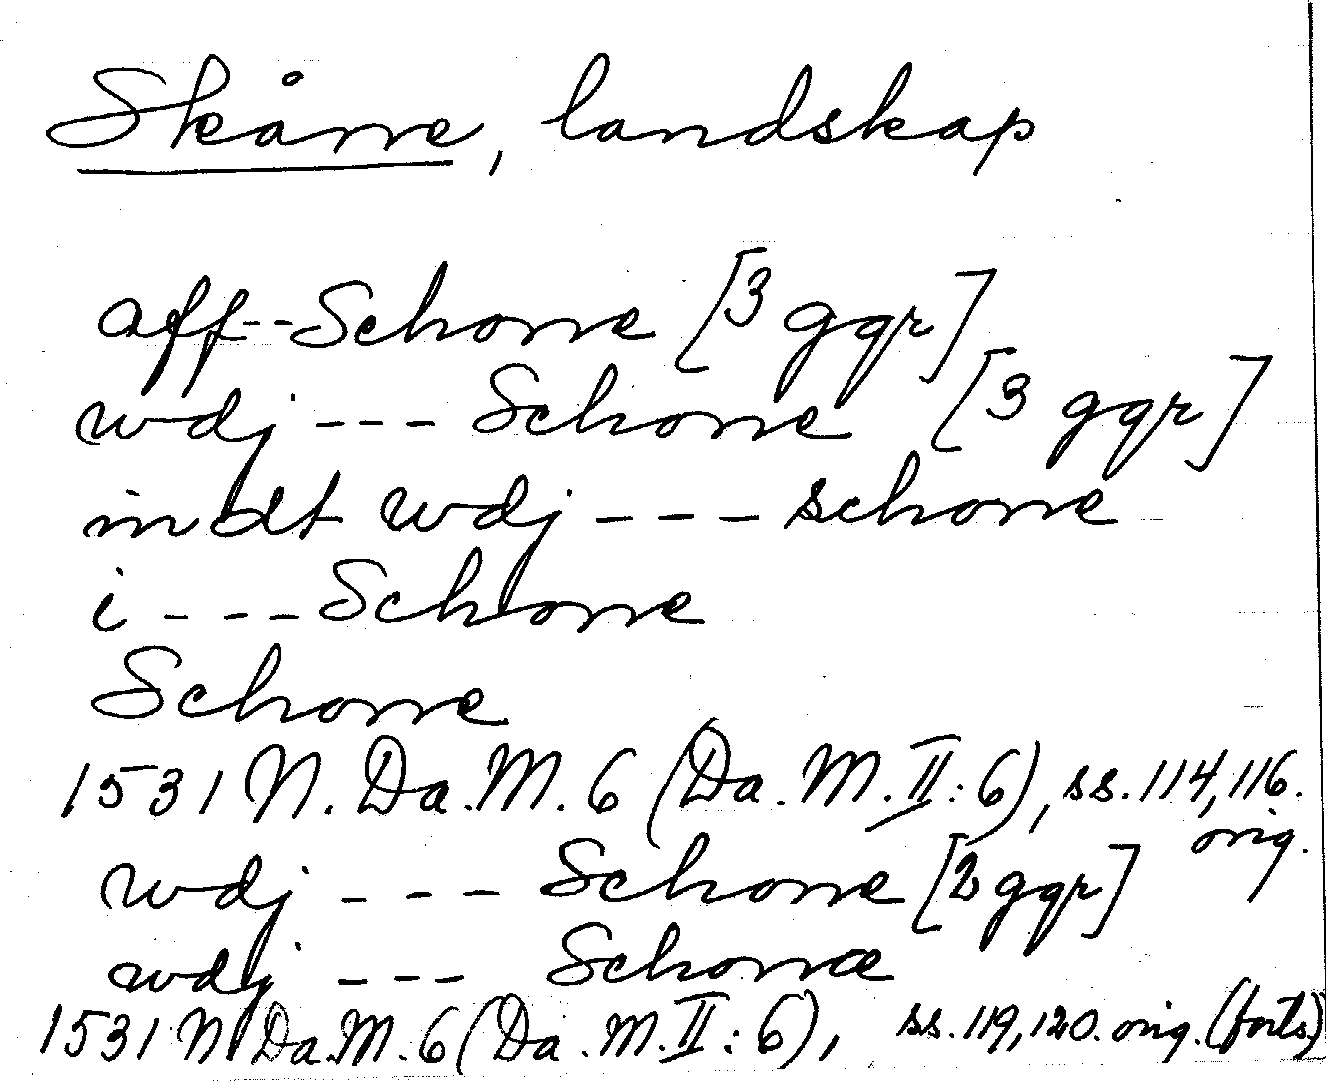 Skåne, landskap
aff--Schone [3 ggr]
wdj --- Schone [3 ggr]
indt wdj --- schone
i --- Schone
Schone
1531 N. Da. M. 6 (Da. M. II: 6), ss. 114, 116.
orig.
wdj --- Schone [2 ggr]
wdj --- Schonæ
1531 N. Da. M. 6 (Da. M. II: 6), ss. 119, 120. orig. (forts)